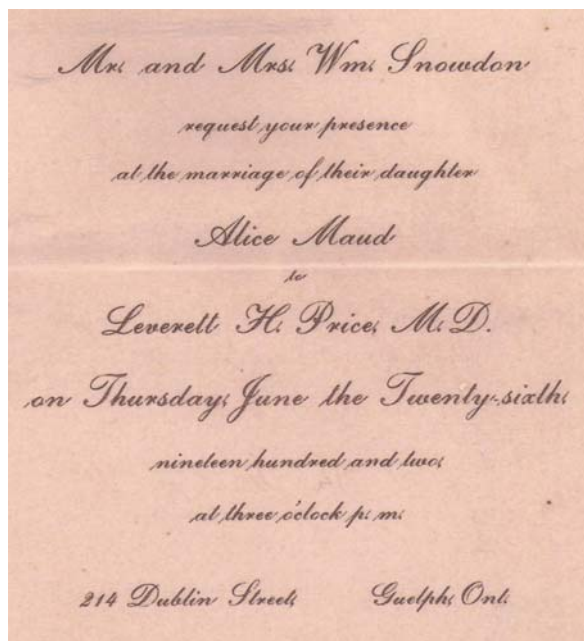 Mr. and Mrs. Wm. Snowdon
request your presence
at the marriage of their daughter
Alice Maud
to
Leverett H. Price, M. D.
on Thursday, June the Twenty-sixth,
nineteen hundred and two,
at three o'clock p. m.
214 Dublin Street, Guelph, Ont.